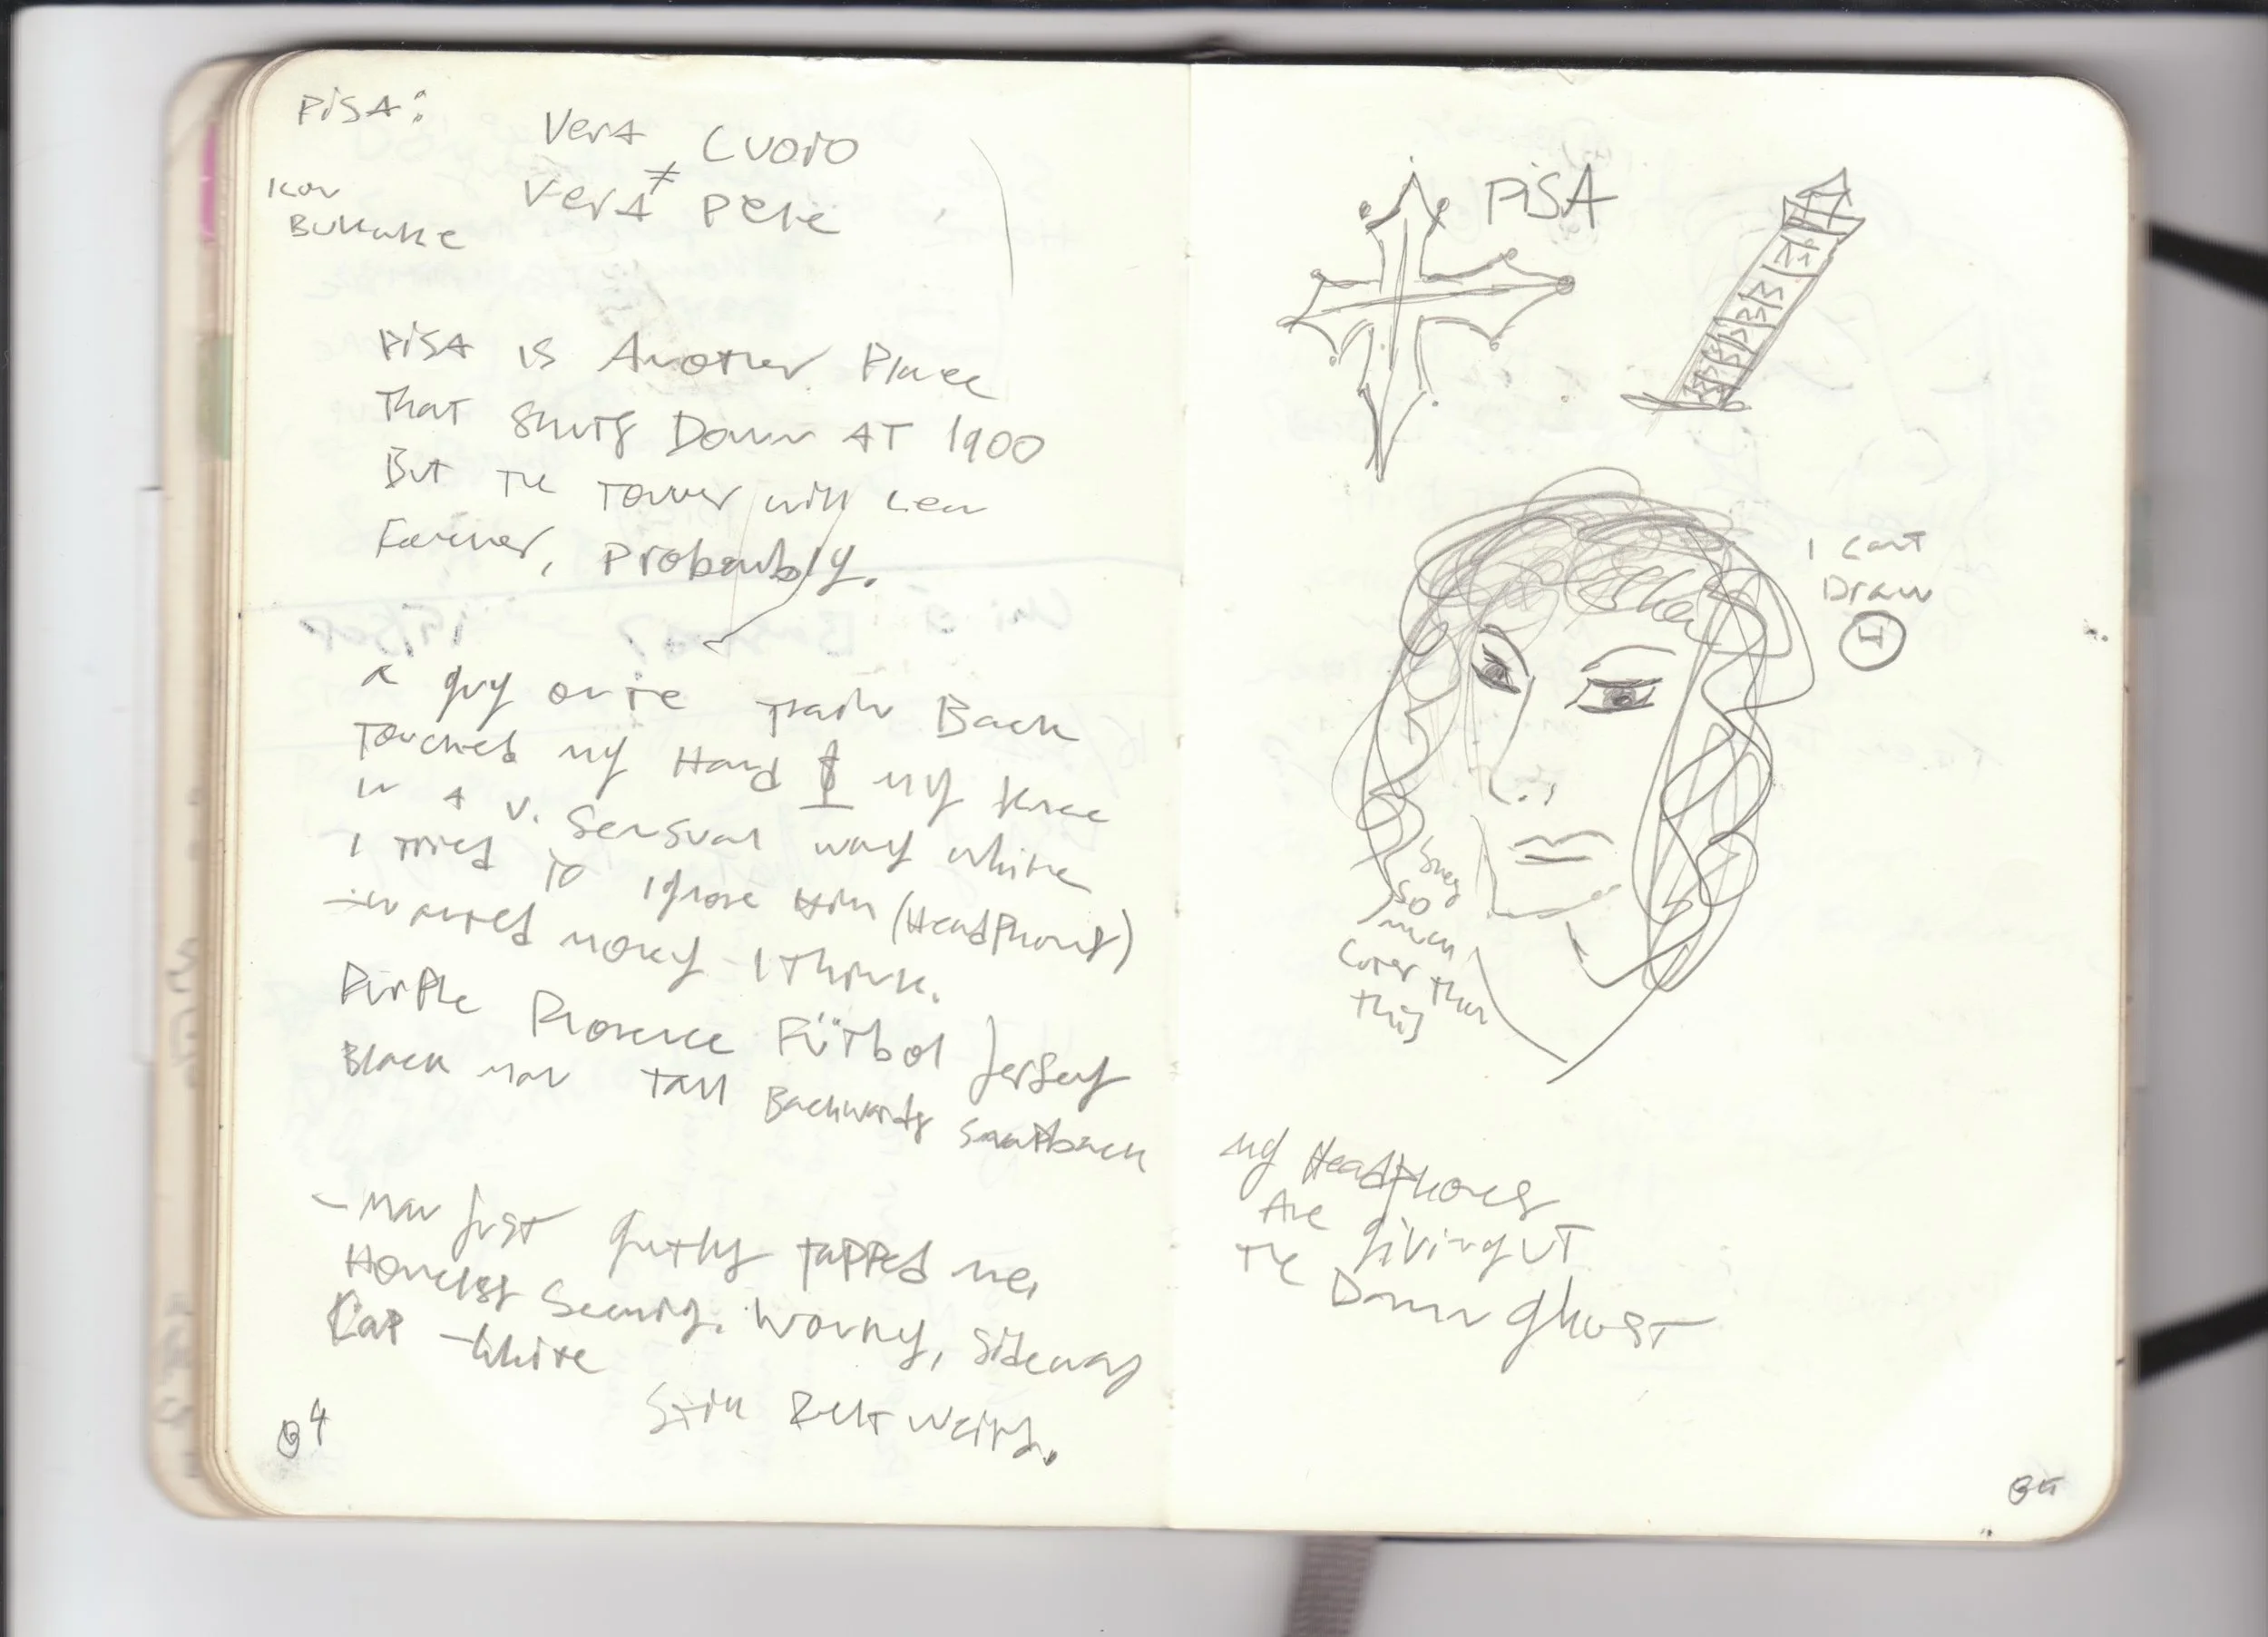 PiSA:
Vera Cuoio
≠
Vera Pelle
PiSA is Another Place
That shuts Down AT 1900
But The Tower will Lean
Forever, probably.
A guy on the train Back
Touched my Hand & my knee
in A v. sensual way while
I tried to ignore Him (Headphones)
- wanted money I think.
Purple Florence Fütbol Jersey
Black man tall Backwards snapback
- Man just gently tapped me.
Homeless seeming. Wormy, sideway
Cap - White
Still Felt weird.
84
PiSA
I Can't
Draw
H
She's
so
much
Cuter than
this
My Headphones
Are Giving UT
The Damn Ghost
85